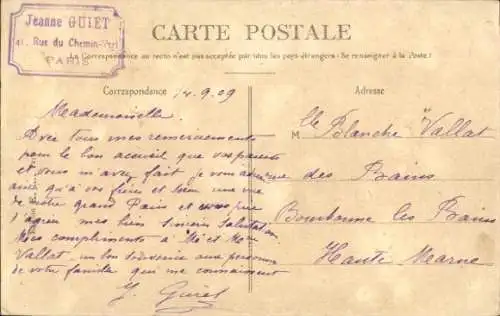 Jeanne GUIET
41, Rue du Chemin-Vert
PARIS
CARTE POSTALE
La Correspondance au recto n'est pas acceptée par tous les pays étrangers - Se renseigner à la Poste !
Correspondance
Adresse
14.9.09
Mademoiselle
Avec tous mes remerciements
pour le bon accueil que vos parents
et vous m'avez fait je vous
ainsi qu'à vos frères et bien une vue
de notre grand Paris et vous prie
d'agréer mes bien sincères salutations
Mes compliments à Mr et Mme
Vallat, un bon souvenir aux personnes
de votre famille qui me connaissent
J. Guiet
M lle Blanche Vallat
rue des Bains
Bourbonne les Bains
Haute Marne